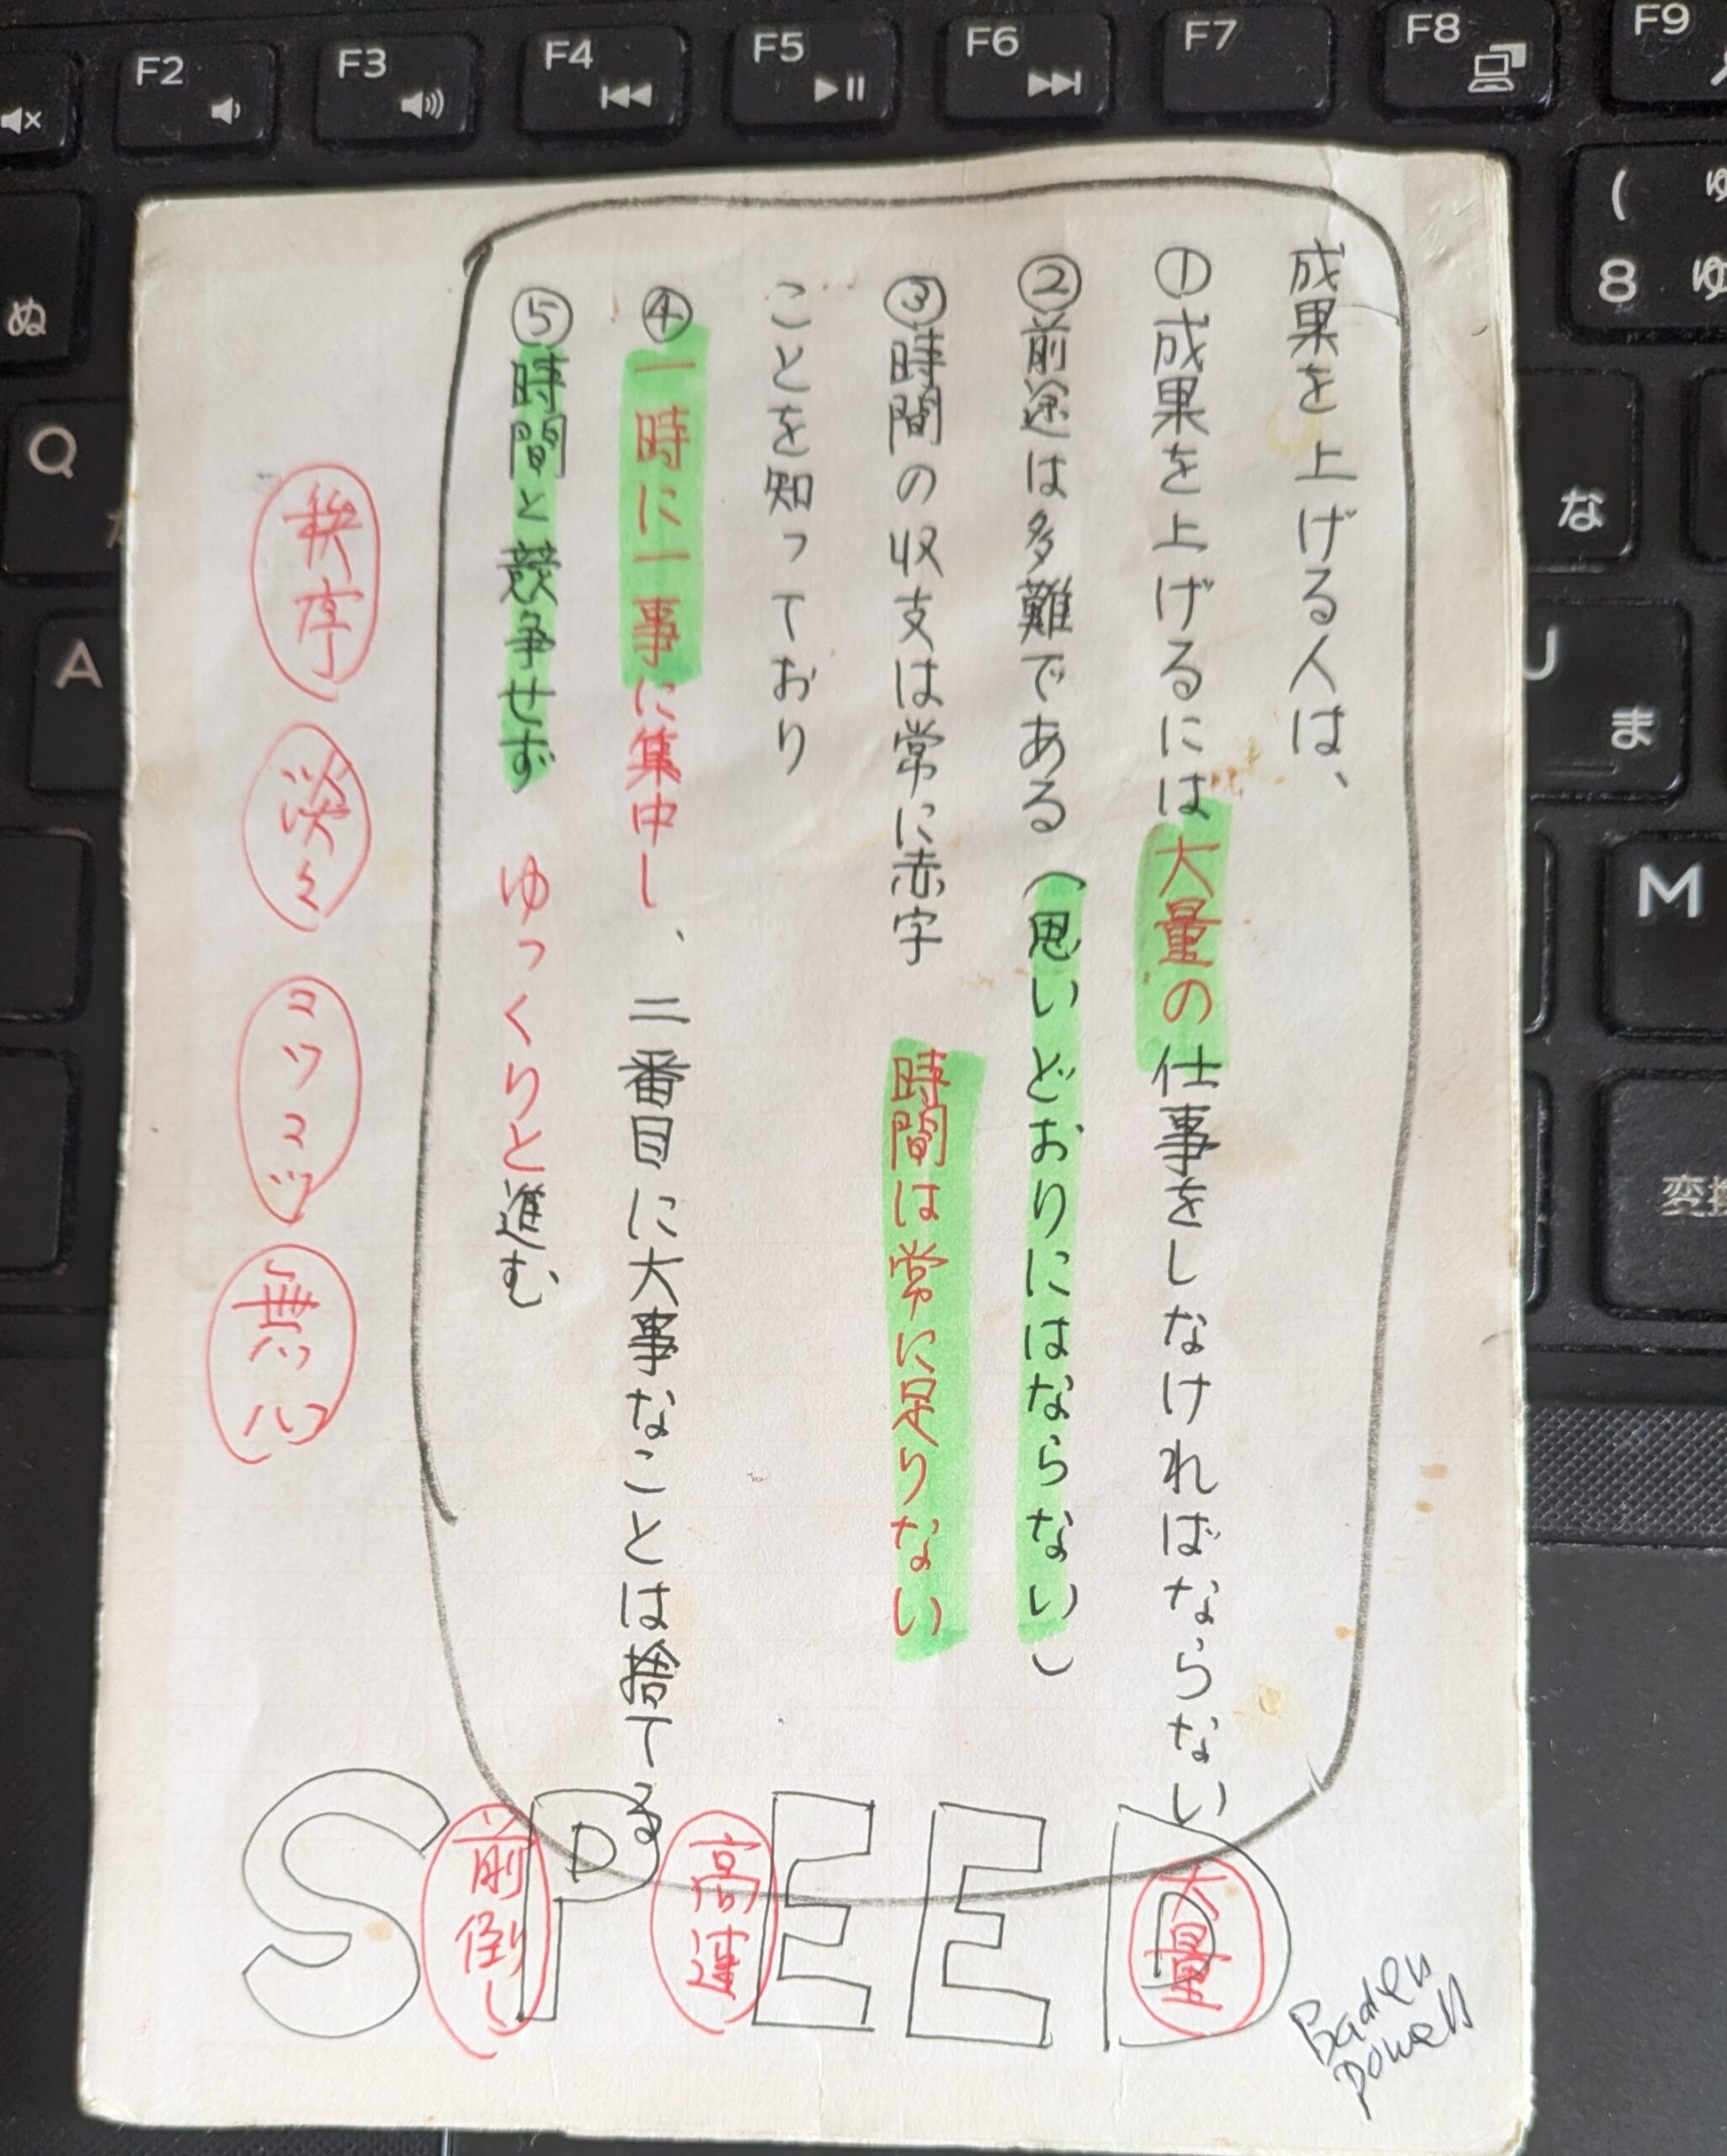 成果を上げる人は、
①成果を上げるには大量の仕事をしなければならない
②前途は多難である（思いどおりにはならない）
③時間の収支は常に赤字　時間は常に足りない
ことを知っており
④一時に一事に集中し、二番目に大事なことは捨てる
⑤時間と競争せず　ゆっくりと進む
秩序　淡々　コツコツ　無心
SPEED
前倒し　高速　大量
Baden
Powell
F2
F3
F4
F5
F6
F7
F8
F9
( ゅ
8 ゆ
ぬ
Q
な
A
U
ま
M
変換